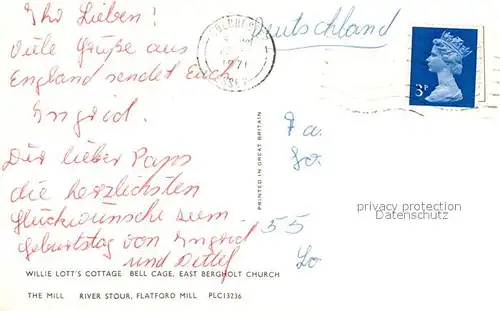 Ihr Lieben!
Viele Grüße aus
England sendet Euch
Ingrid.
Dir lieber Papa
die herzlichsten
Glückwünsche zum
Geburtstag von Ingrid
und Detlef
Deutschland
1971
3P
Fa.
55
PRINTED IN GREAT BRITAIN
privacy protection
Datenschutz
WILLIE LOTT'S COTTAGE BELL CAGE, EAST BERGHOLT CHURCH
THE MILL RIVER STOUR, FLATFORD MILL PLC13236